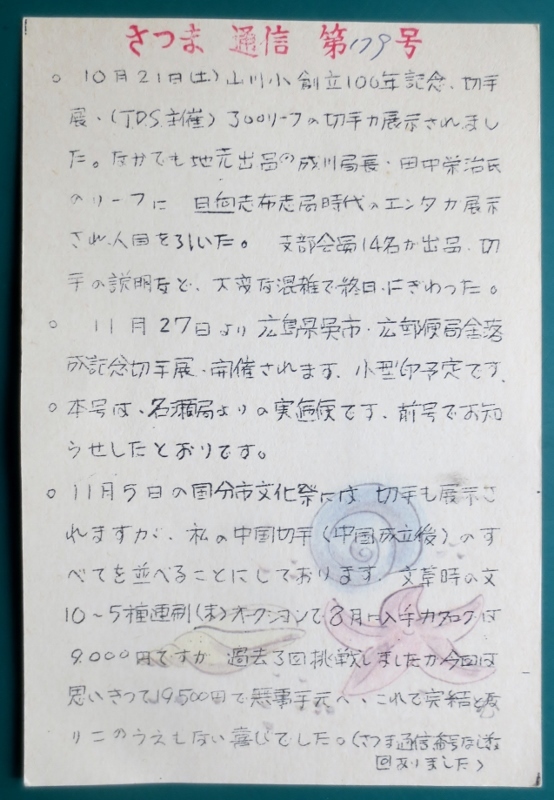 さつま 通信 第179号
○ 10月21日(土)山川小創立100年記念、切手
展、(JPS主催)300リーフの切手が展示されまし
た。なかでも地元出品の成川局長・田中栄治氏
のリーフに 日向志布志局時代のエンタが展示
され人目を引いた。 支部会員14名が出品、切
手の説明など、大変な混雑で終日にぎわった。
○ 11月27日より広島県呉市・広郵便局舎落
成記念切手展・開催されます、小型印予定です、
○ 本号は、名瀬局よりの実逓便です、前号でお知
らせしたとおりです。
○ 11月5日の国分市文化祭には 切手も展示さ
れますが、私の中国切手(中国成立後)のす
べてを並べることにしております、文革時の文
10~5種連刷(未)オークションで8月に入手カタログは
9.000円ですが 過去3回挑戦しましたが今回は
思いきって19,500円で無事手元へ、これで完結と
りこのうえもない喜びでした。(さつま通信番号なし
回ありました)